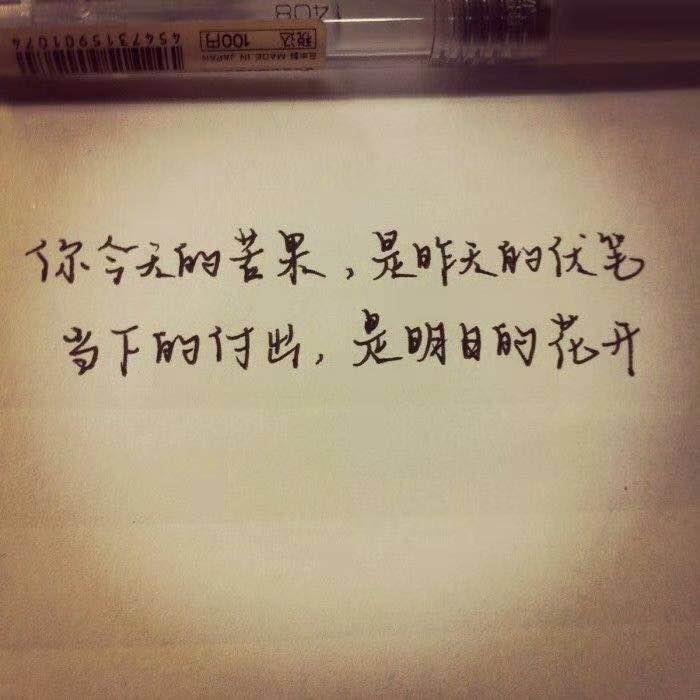 408
税込 100円
日本製 MADE IN JAPAN
4547315901074
你今天的苦果，是昨天的伏笔
当下的付出，是明日的花开